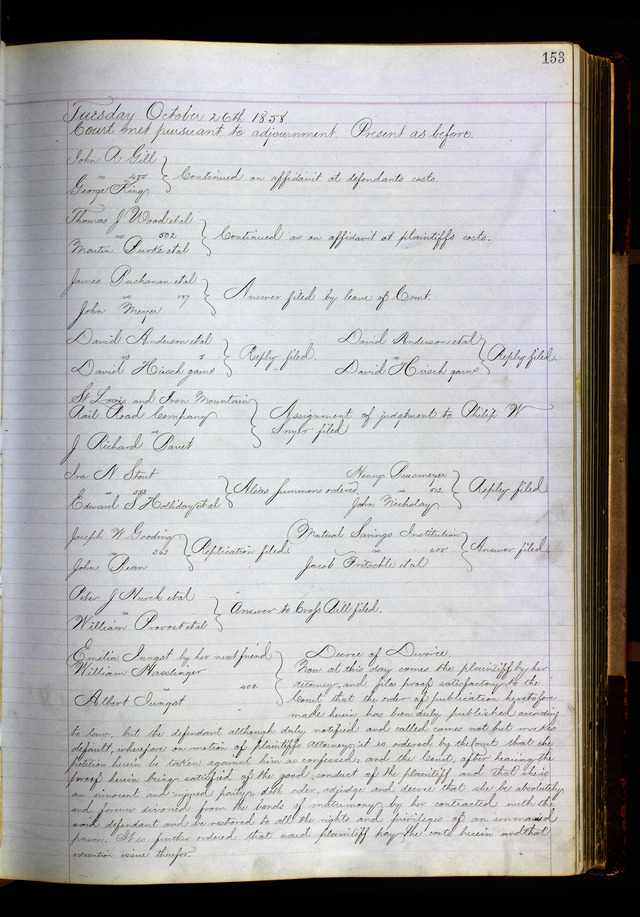 153
Tuesday October 26th 1858
Court met pursuant to adjournment. Present as before.
John A Gilt
vs
George King
Continued on affidavit at defendants costs.
Thomas J Wood et al
vs 502
Martin Burke et al
Continued as on affidavit at plaintiffs costs.
James Buchanan et al
vs 187
John Meyer
Answer filed by leave of Court.
David Anderson et al
vs 5
David Hirsch garns
Reply filed.
David Anderson et al
vs
David Hirsch garns
Reply filed
St Louis and Iron Mountain
Rail Road Company
vs
J Richard Baret
Assignment of judgment to Philip W
Snyder filed
Ira N Stout
vs
Edward S Holliday et al
Alias Summons ordered
Henry
vs 512
John Nicholay
Reply filed
Joseph W Gooding
vs 363
John Bean
Replication filed.
Mutual Savings Institution
vs 605
Jacob Fritchle et al
Answer filed.
Peter J Hurck et al
vs
William Provost et al
Answer to Cross Bill filed.
Emilia Jungst by her next friend
William Hasslinger
vs 402
Albert Jungst
Decree of Divorce.
Now at this day comes the plaintiff by her
attorney, and files proof satisfactory to the
Court that the order of publication heretofore
made herein has been duly published according
to law, but the defendant although duly notified and called comes not but makes
default, wherefore on motion of plaintiffs attorney, it is ordered by the Court that the
petition herein be taken against him as confessed; and the Court, after hearing the
proof herein being satisfied of the good conduct of the plaintiff and that she is
an innocent and injured party, doth order, adjudge and decree that she be absolutely
and forever divorced from the bonds of matrimony by her contracted with the
said defendant and be restored to all the rights and privileges of an unmarried
person. It is further ordered that said plaintiff pay the costs herein and that
execution issue therefor.